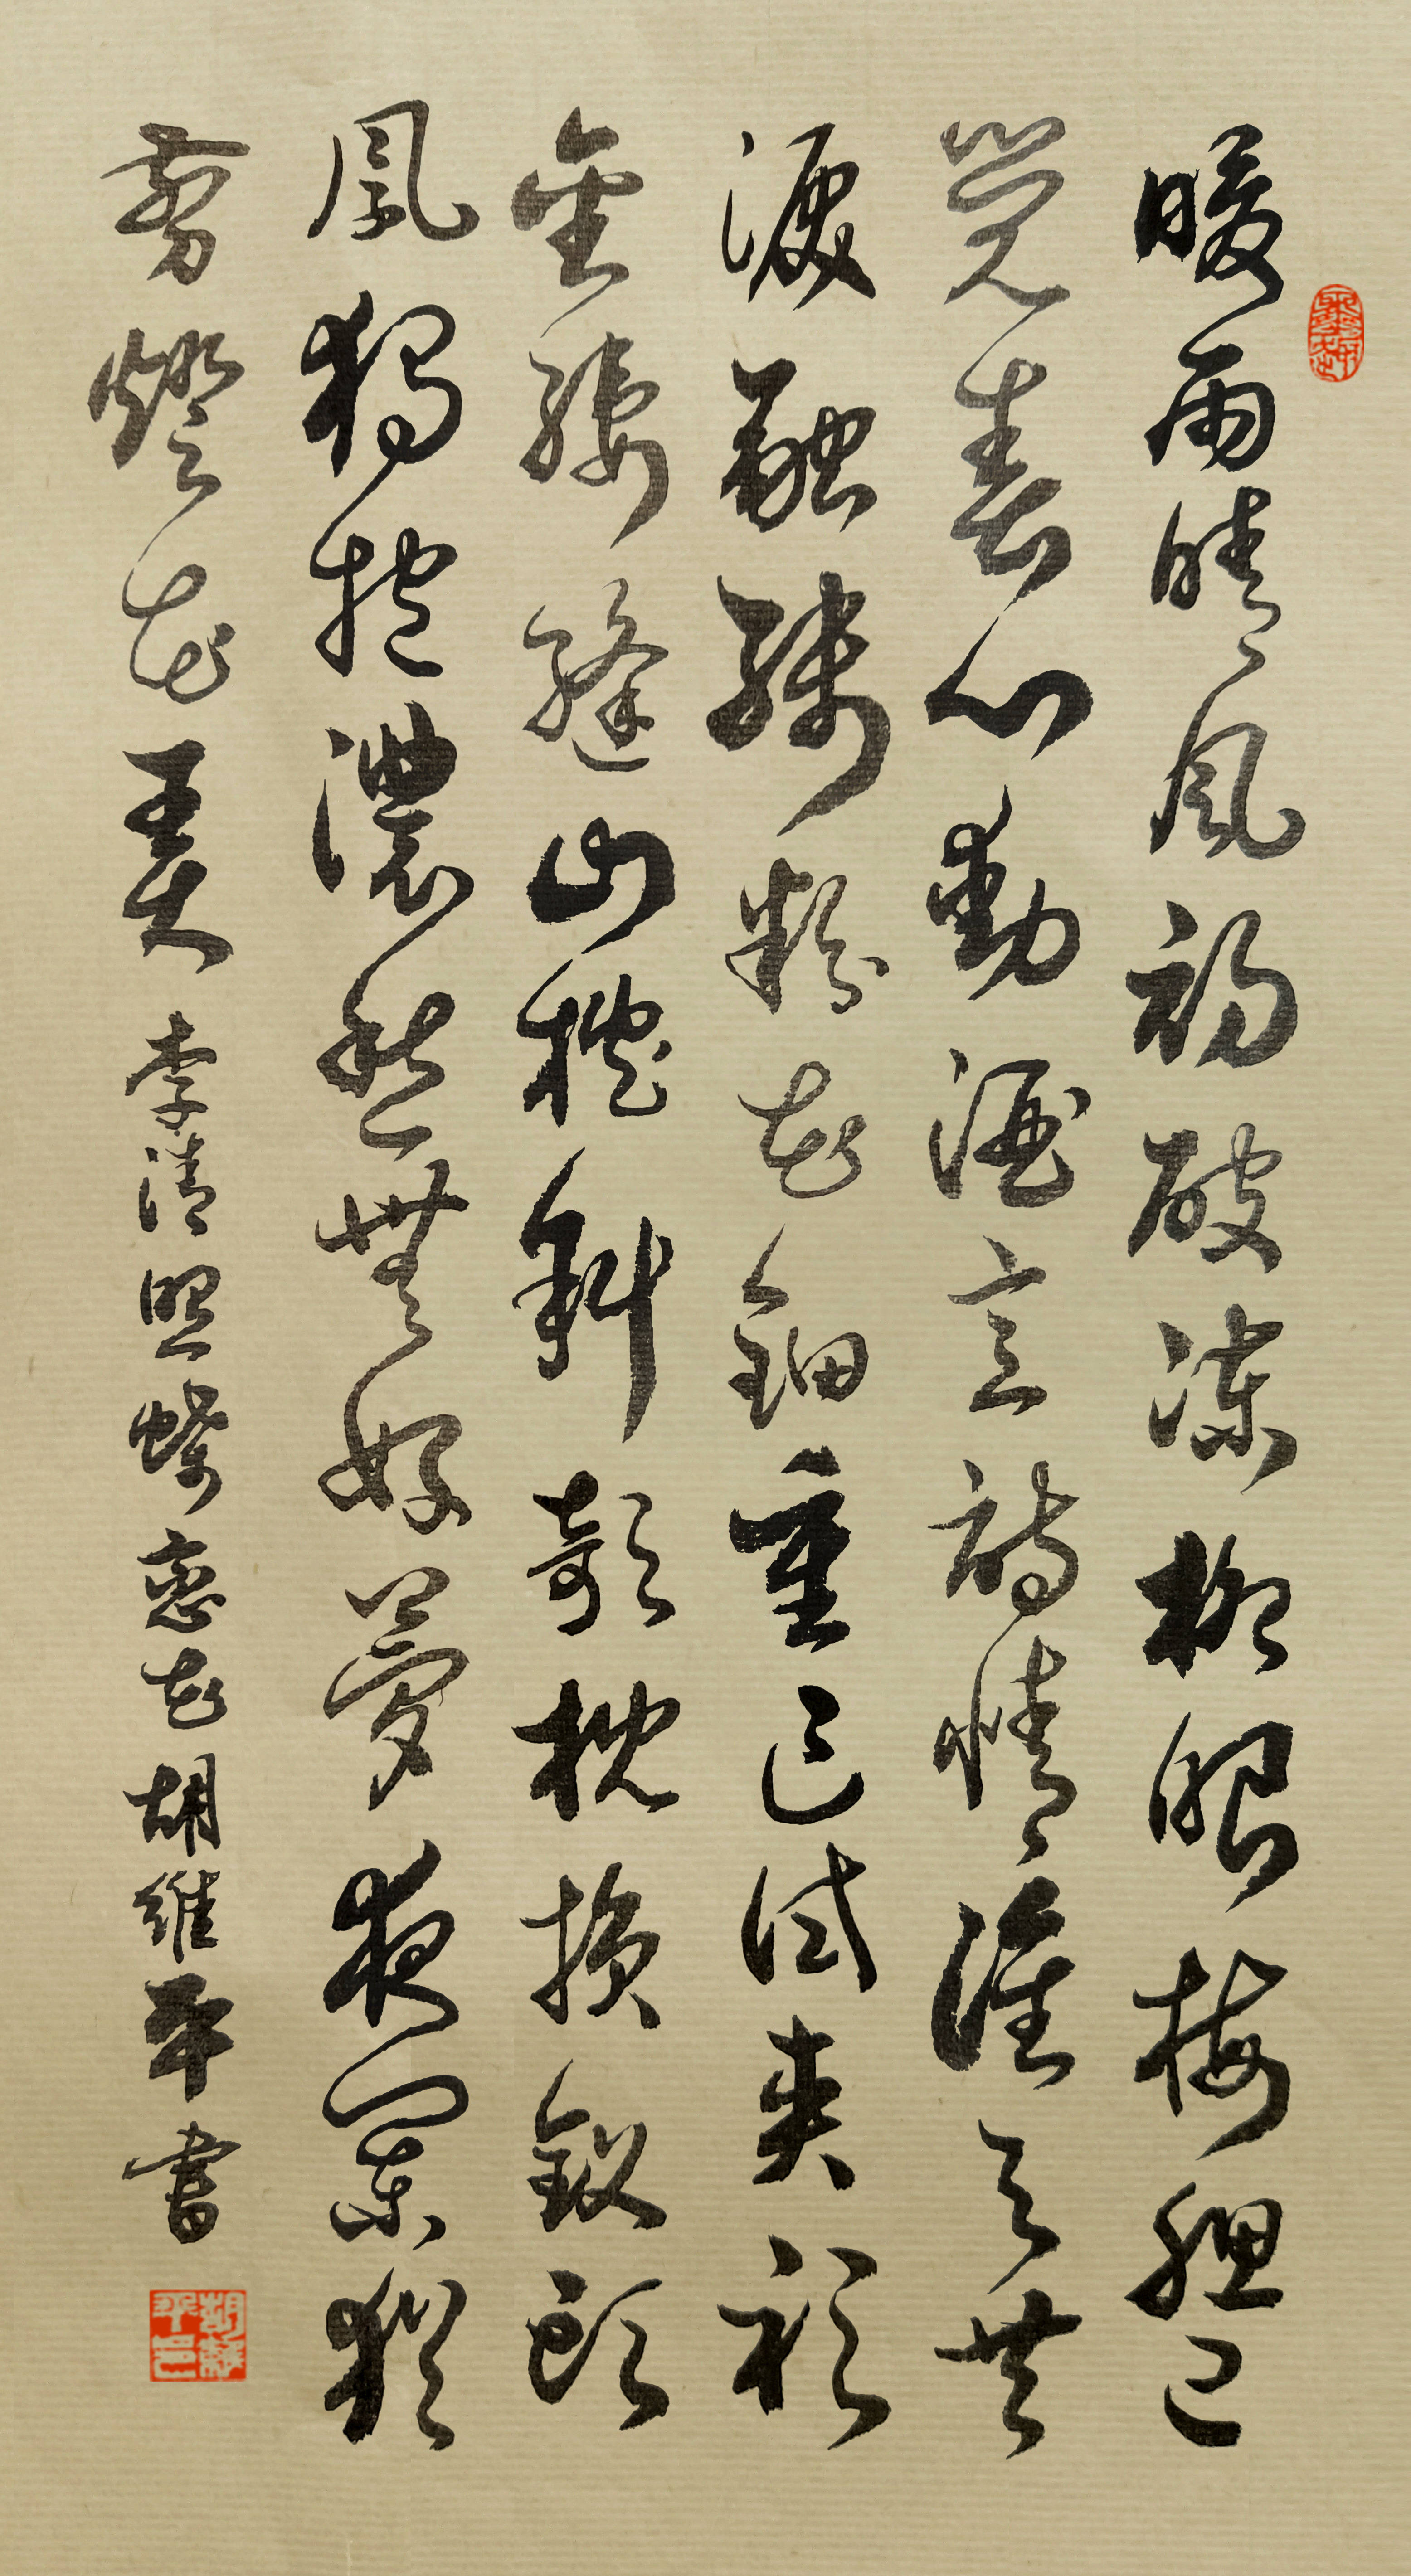 暖雨晴風初破凍柳眼梅腮已
覺春心動酒意詩情誰與共
淚融殘粉花鈿重乍試夾衫
金縷縫山枕斜欹枕損釵頭
鳳獨抱濃愁無好夢夜闌猶
剪燈花弄李清照蝶戀花胡維平書